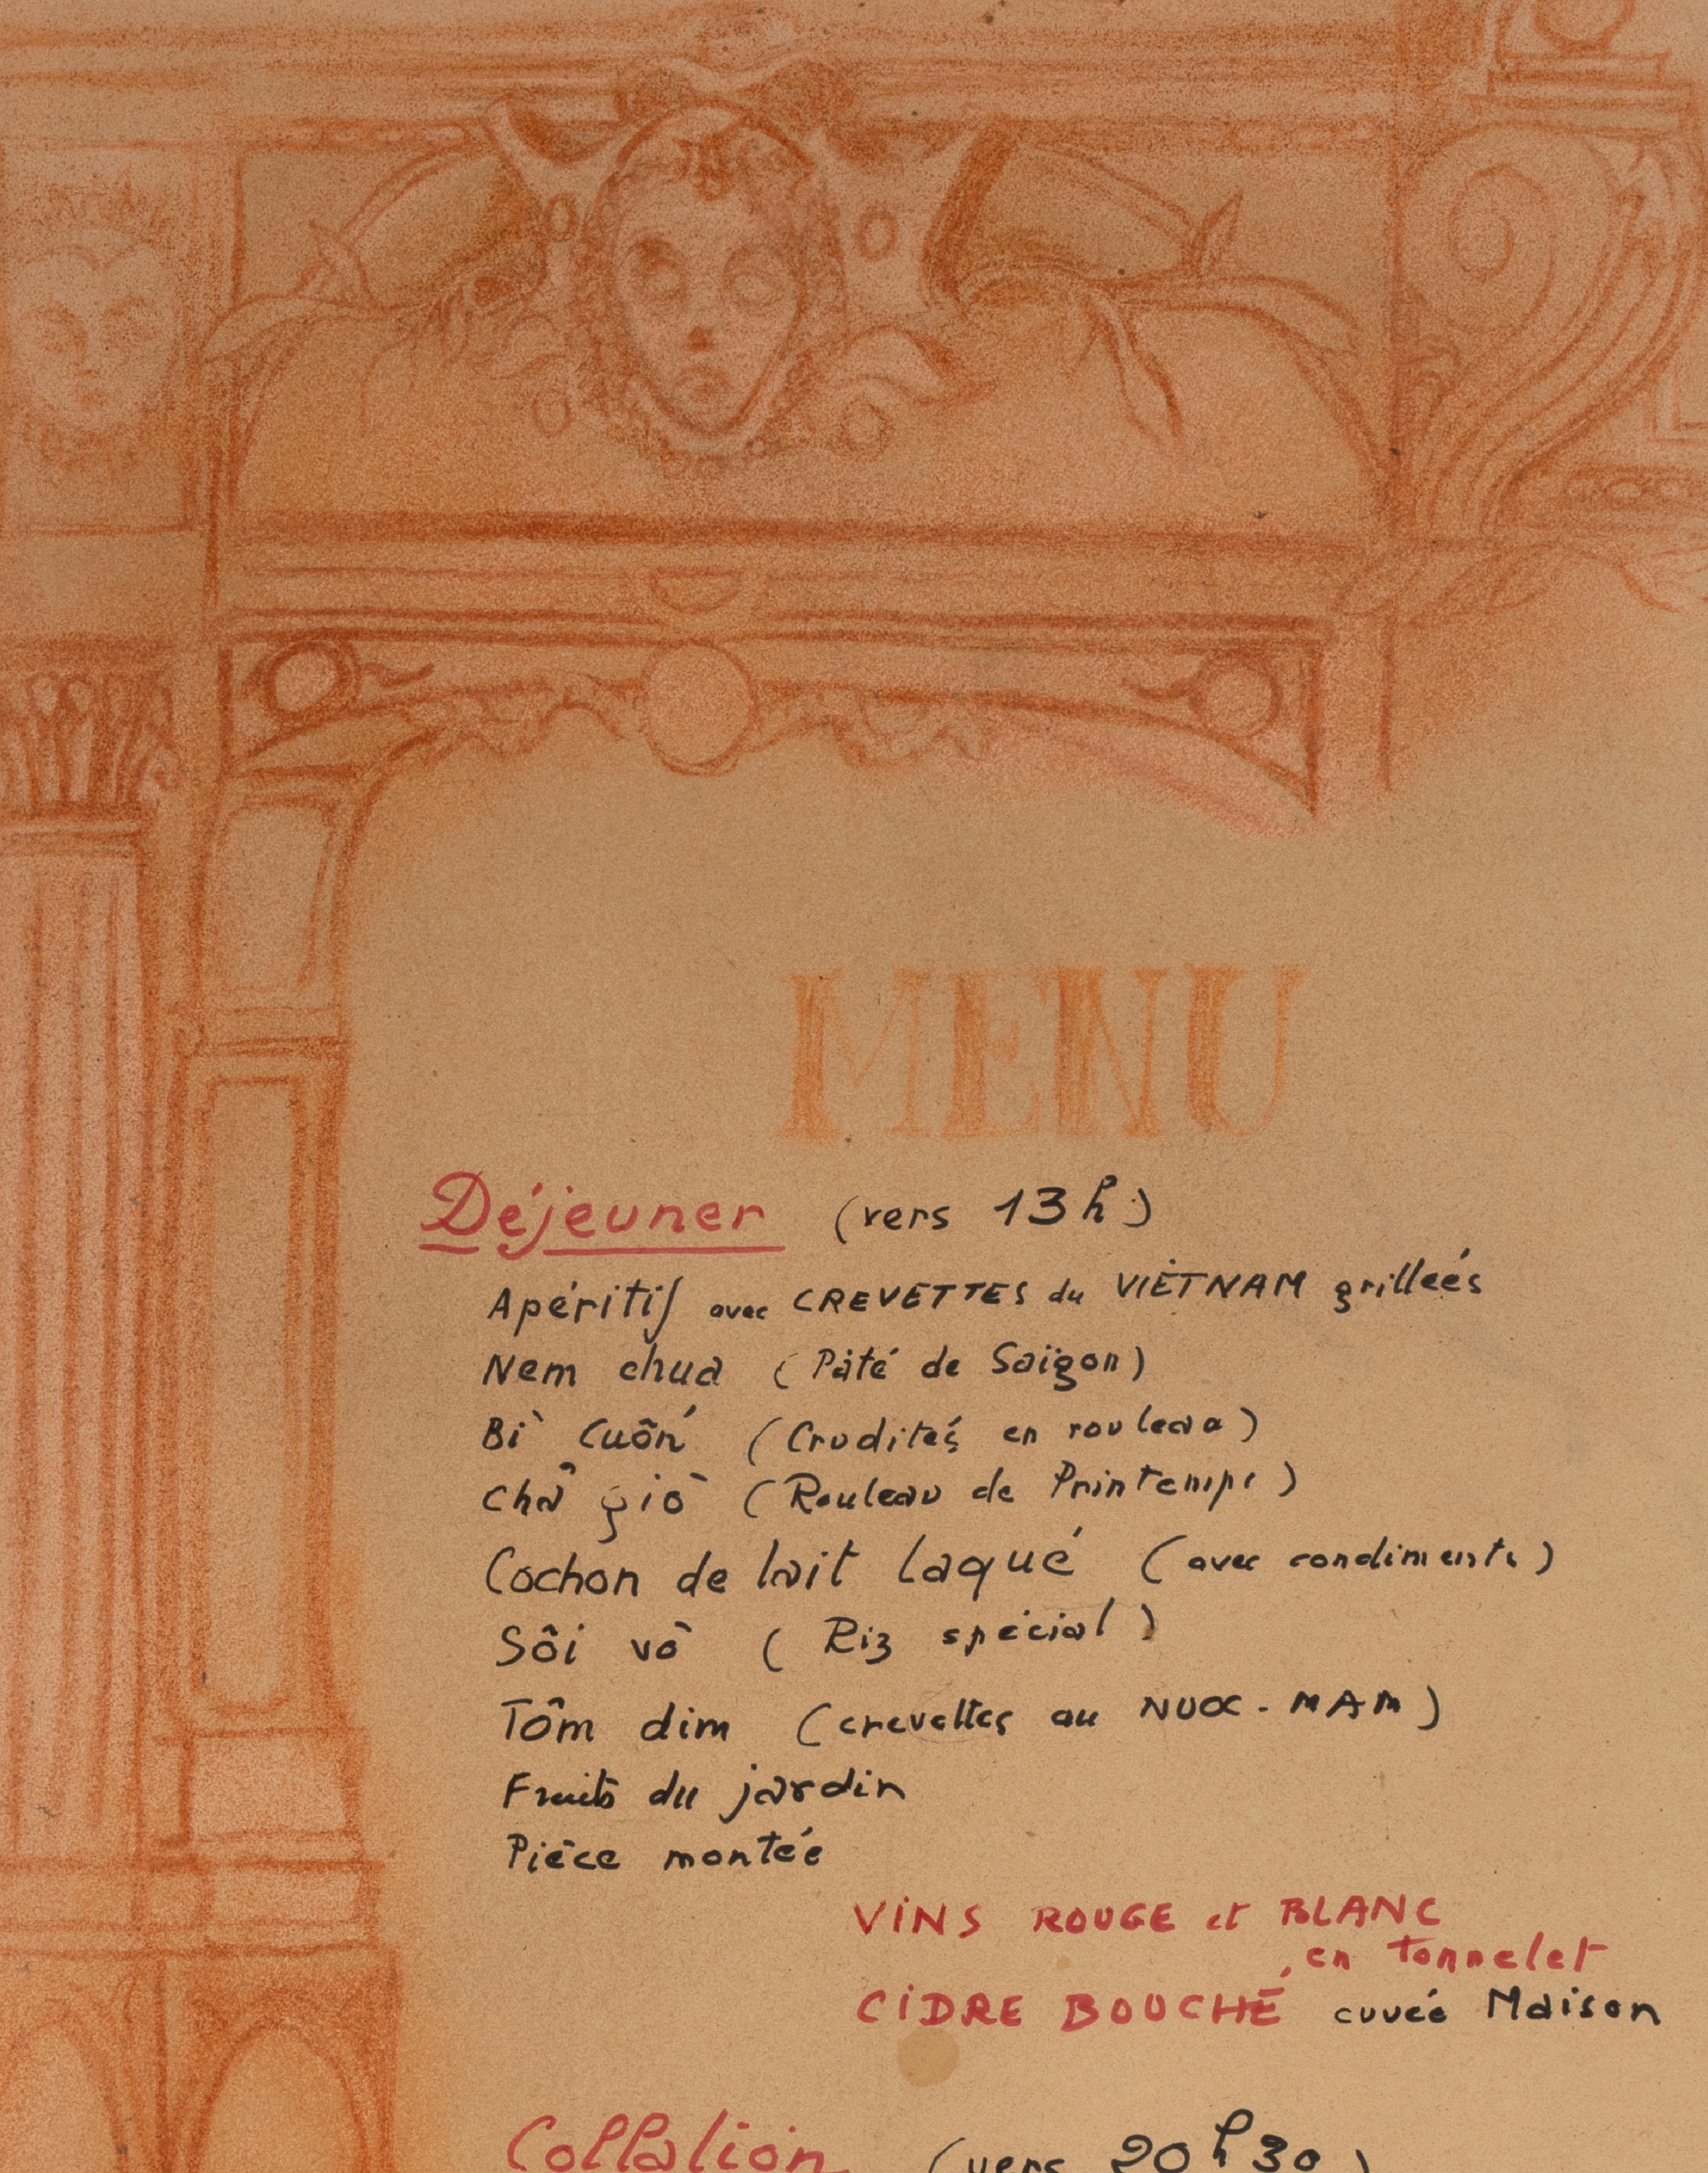 MENU
Déjeuner (vers 13h)
Apéritif avec CREVETTES du VIÊTNAM grilleés
Nem chua (Pâté de Saïgon)
Bì Cuôń (Crudités en rouleau)
Chả giò (Rouleau de Printemps)
Cochon de lait laqué (avec condiments)
Sôi vò (Riz spécial)
Tôm dim (crevettes au NUOC-MAM)
Fruits du jardin
Pièce montée
VINS ROUGE et BLANC
en tonnelet
CIDRE BOUCHÉ cuvée Maison
Collation (vers 20h30)